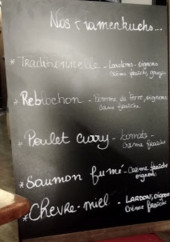 Nos Flamenkuchs...
* Traditionnelle - Lardons, oignons
Crème fraîche, gruyère
* Reblochon - Pomme de terre, oignons
Crème fraîche
* Poulet curry - tomate -
Crème fraîche
* Saumon fumé - Crème fraîche
oignons
* Chèvre-miel - Lardons, oignons
Crème fraîche